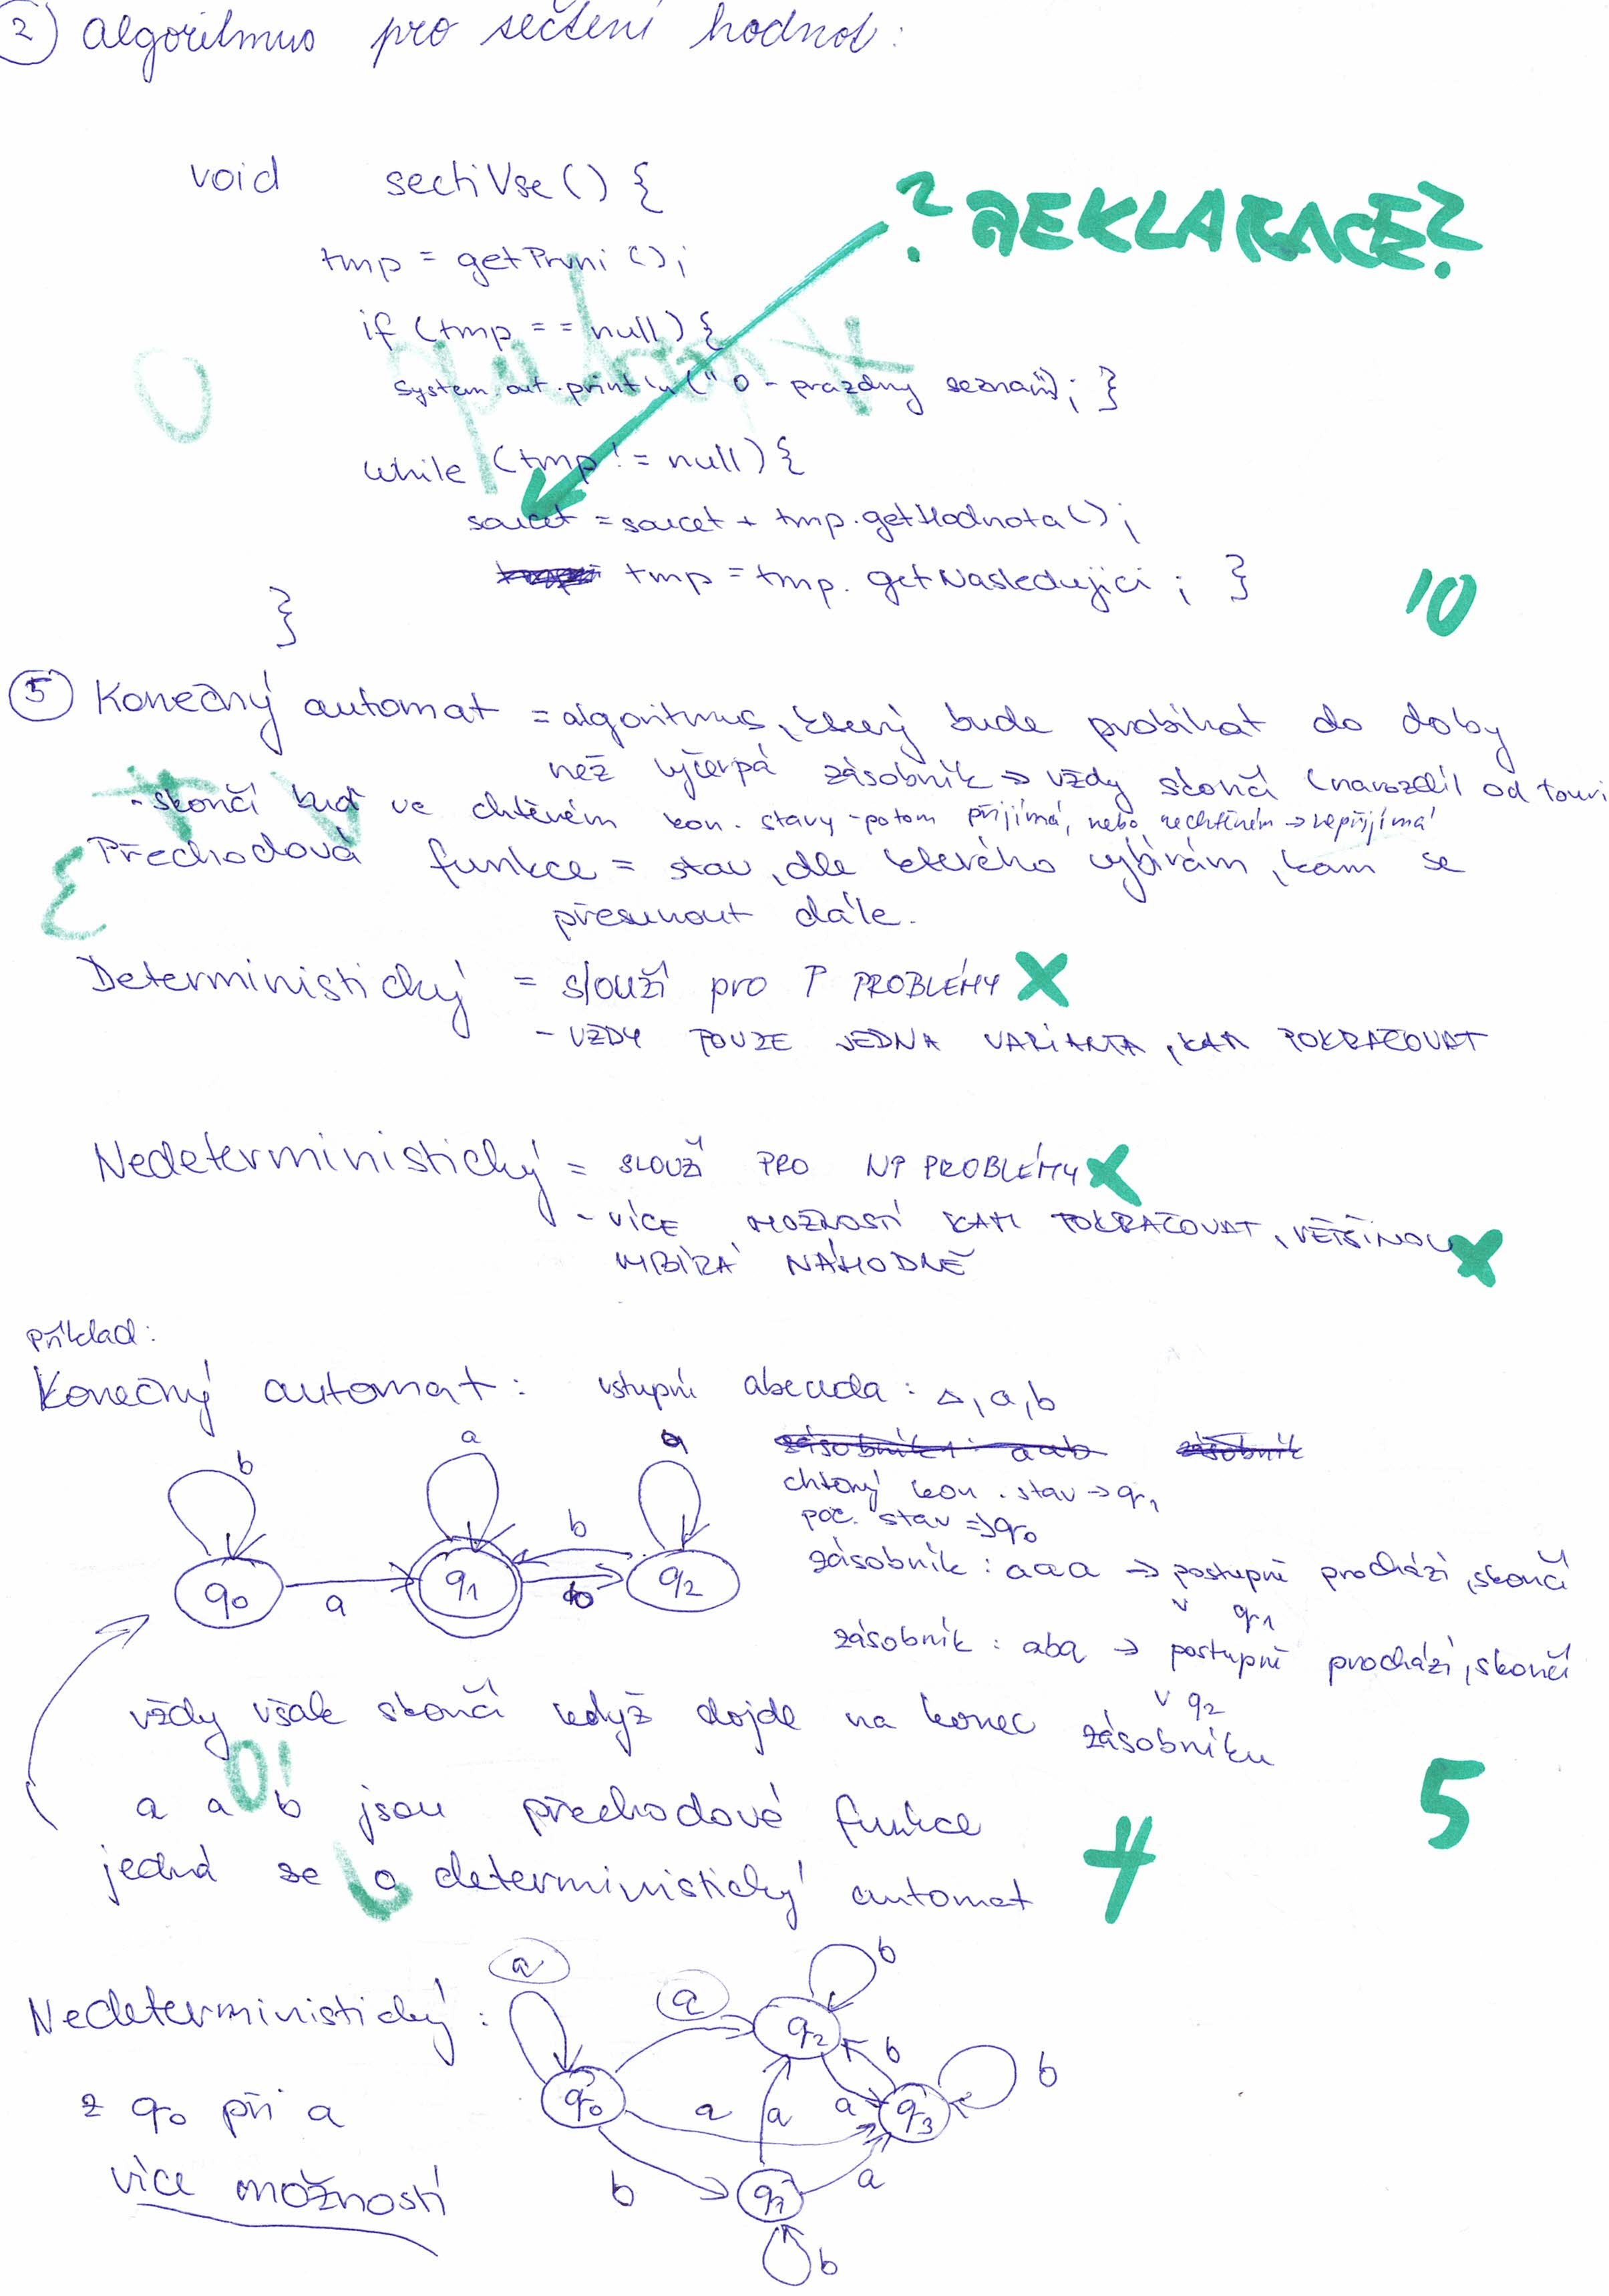 2) algoritmus pro sečtení hodnot:
void sectiVse() {
? DEKLARACE?
tmp = getPrvni();
if (tmp == null) {
System.out.println("0 - prazdny seznam"); }
while (tmp != null) {
soucet = soucet + tmp.getHodnota();
tmp = tmp.getNasledujici; }
}
10
5) Konečný automat = algoritmus, který bude probíhat do doby
než vyčerpá zásobník => vždy skončí (narozdíl od turi
- skončí buď ve chtěném kon. stavy - potom přijímá, nebo nechtěném → nepřijímá
Přechodová funkce = stav, dle kterého vybírám, kam se
přesunout dále.
Deterministický = slouží pro P PROBLÉMY X
- VŽDY POUZE JEDNA VARIANTA, KAM POKRAČOVAT
Nedeterministický = SLOUŽÍ PRO NP PROBLÉMY X
- VÍCE MOŽNOSTÍ KAM POKRAČOVAT, VĚTŠINOU X
VYBÍRÁ NÁHODNĚ
Příklad:
Konečný automat: vstupní abeceda: Δ, a, b
zásobník: aab zásobník
chtěný kon. stav → q1
poč. stav => q0
b a a
b
q0 a q1 b q2
zásobník: aaa → postupně prochází, skončí
v q1
zásobník: aba → postupně prochází, skončí
v q2
vždy však skončí když dojde na konec zásobníku
5
a a b jsou přechodové funkce
jedná se o deterministický automat
4
Nedeterministický:
z q0 při a
více možností
a a b
q0 q2 b b
a a a q3
b q1 a
b